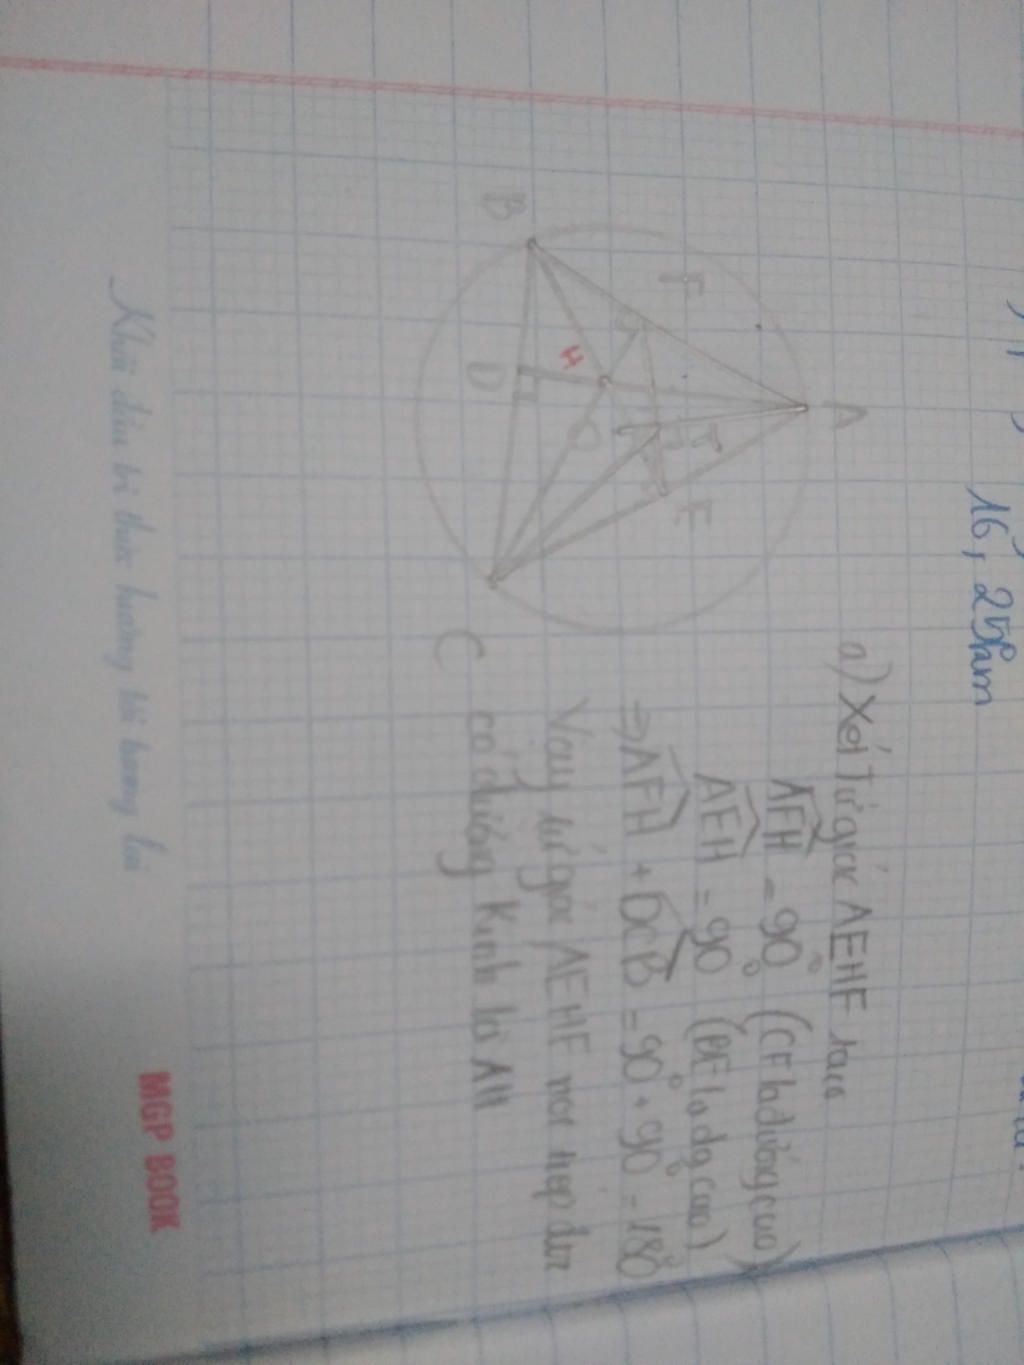 16, 25 fam
a) Xét Tứ giác AEHF taca
AFH = 90° (CF la đường cao)
AEH = 90° (BE la đg cao)
⇒ AFH + DCB = 90° + 90° = 180°
Vay tứ giác AEHF nội tiếp đtr
có đường Kính là AH
A
B
C
D
E
F
H
O
I
Khởi đầu tri thức hướng tới tương lai
MGP BOOK